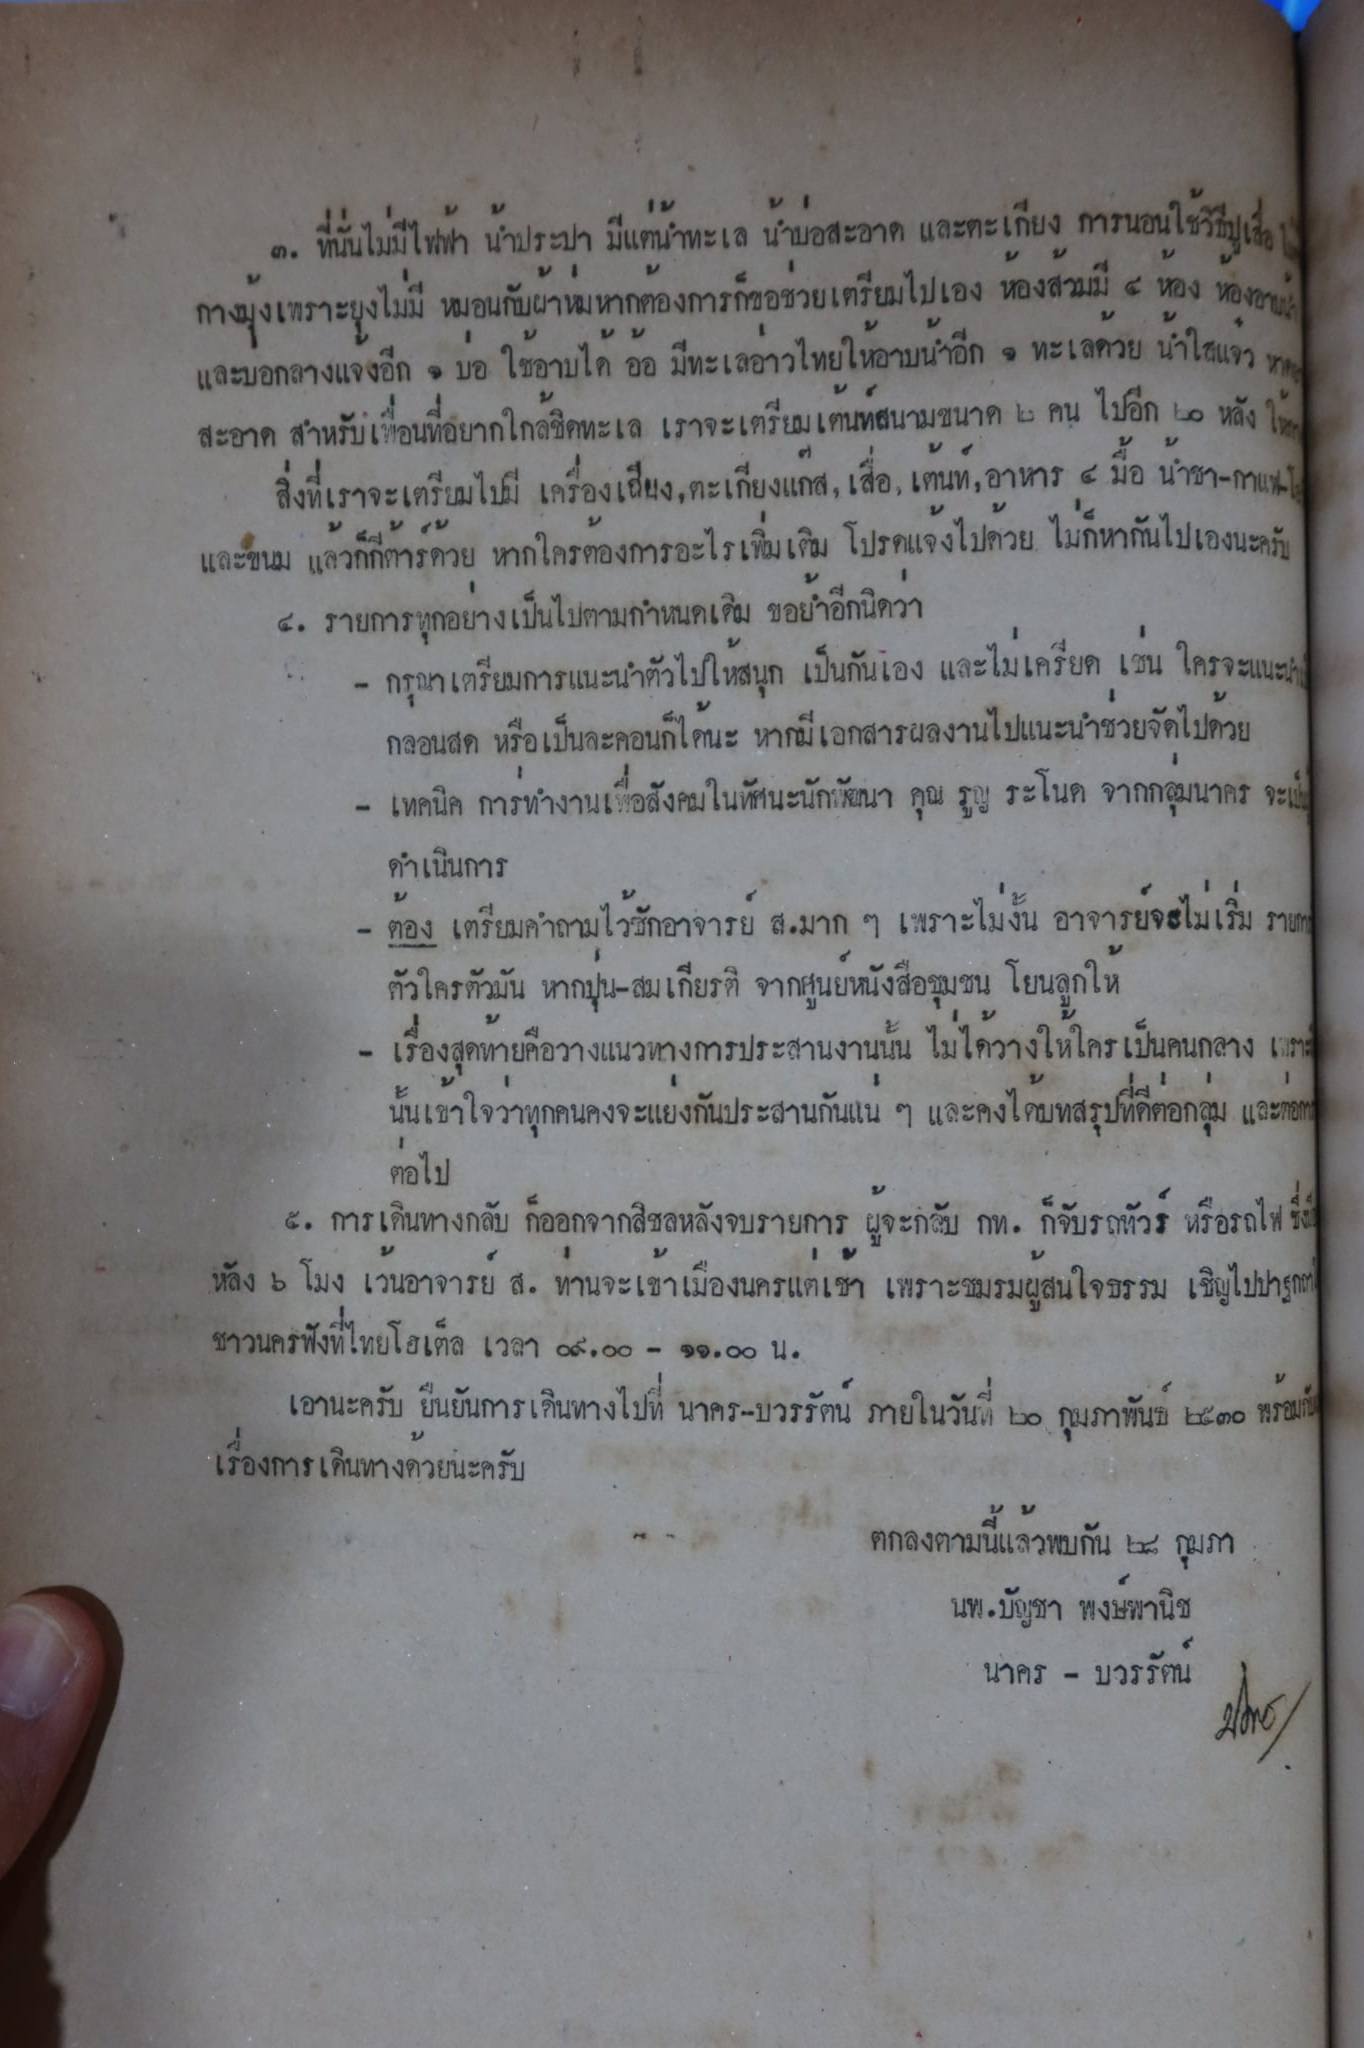 ๓. ที่นั่นไม่มีไฟฟ้า น้ำประปา มีแต่น้ำทะเล น้ำบ่อสะอาด และตะเกียง การนอนใช้วิธีปูเสื่อ
กางมุ้งเพราะยุงไม่มี หมอนกับผ้าห่มหากต้องการก็ขอช่วยเตรียมไปเอง ห้องส้วมมี ๔ ห้อง ห้องอาบน้ำ
และบ่อกลางแจ้งอีก ๑ บ่อ ใช้อาบได้ อ้อ มีทะเลอ่าวไทยให้อาบน้ำอีก ๑ ทะเลด้วย น้ำใสแจ๋ว
สะอาด สำหรับเพื่อนที่อยากใกล้ชิดทะเล เราจะเตรียมเต้นท์สนามขนาด ๒ คน ไปอีก ๒๐ หลัง
สิ่งที่เราจะเตรียมไปมี เครื่องเสียง, ตะเกียงแก๊ส, เสื่อ, เต้นท์, อาหาร ๔ มื้อ น้ำชา-กาแฟ-
และขนม แล้วก็กีต้าร์ด้วย หากใครต้องการอะไรเพิ่มเติม โปรดแจ้งไปด้วย ไม่ก็หากันไปเองนะครับ
๔. รายการทุกอย่างเป็นไปตามกำหนดเดิม ขอย้ำอีกนิดว่า
- กรุณาเตรียมการแนะนำตัวไปให้สนุก เป็นกันเอง และไม่เครียด เช่น ใครจะแนะนำ
กลอนสด หรือเป็นละคอนก็ได้นะ หากมีเอกสารผลงานไปแนะนำช่วยจัดไปด้วย
- เทคนิค การทำงานเพื่อสังคมในทัศนะนักพัฒนา คุณ รูญ ระโนด จากกลุ่มนาคร จะเป็น
ดำเนินการ
- ต้อง เตรียมคำถามไว้ซักอาจารย์ ส.มาก ๆ เพราะไม่งั้น อาจารย์จะไม่เริ่ม รายการ
ตัวใครตัวมัน หากปุ่น-สมเกียรติ จากศูนย์หนังสือชุมชน โยนลูกให้
- เรื่องสุดท้ายคือวางแนวทางการประสานงานนั้น ไม่ได้วางให้ใครเป็นคนกลาง เพราะ
นั้นเข้าใจว่าทุกคนคงจะแย่งกันประสานกันแน่ ๆ และคงได้บทสรุปที่ดีต่อกลุ่ม และต่อ
ต่อไป
๕. การเดินทางกลับ ก็ออกจากสิชลหลังจบรายการ ผู้จะกลับ กท. ก็จับรถทัวร์ หรือรถไฟ ซึ่ง
หลัง ๖ โมง เว้นอาจารย์ ส. ท่านจะเข้าเมืองนครแต่เช้า เพราะชมรมผู้สนใจธรรม เชิญไปปาฐกถา
ชาวนครฟังที่ไทยโฮเต็ล เวลา ๐๙.๐๐ - ๑๑.๐๐ น.
เอานะครับ ยืนยันการเดินทางไปที่ นาคร-บวรรัตน์ ภายในวันที่ ๒๐ กุมภาพันธ์ ๒๕๓๐ พร้อมกับ
เรื่องการเดินทางด้วยนะครับ
ตกลงตามนี้แล้วพบกัน ๒๘ กุมภา
นพ.บัญชา พงษ์พานิช
นาคร - บวรรัตน์